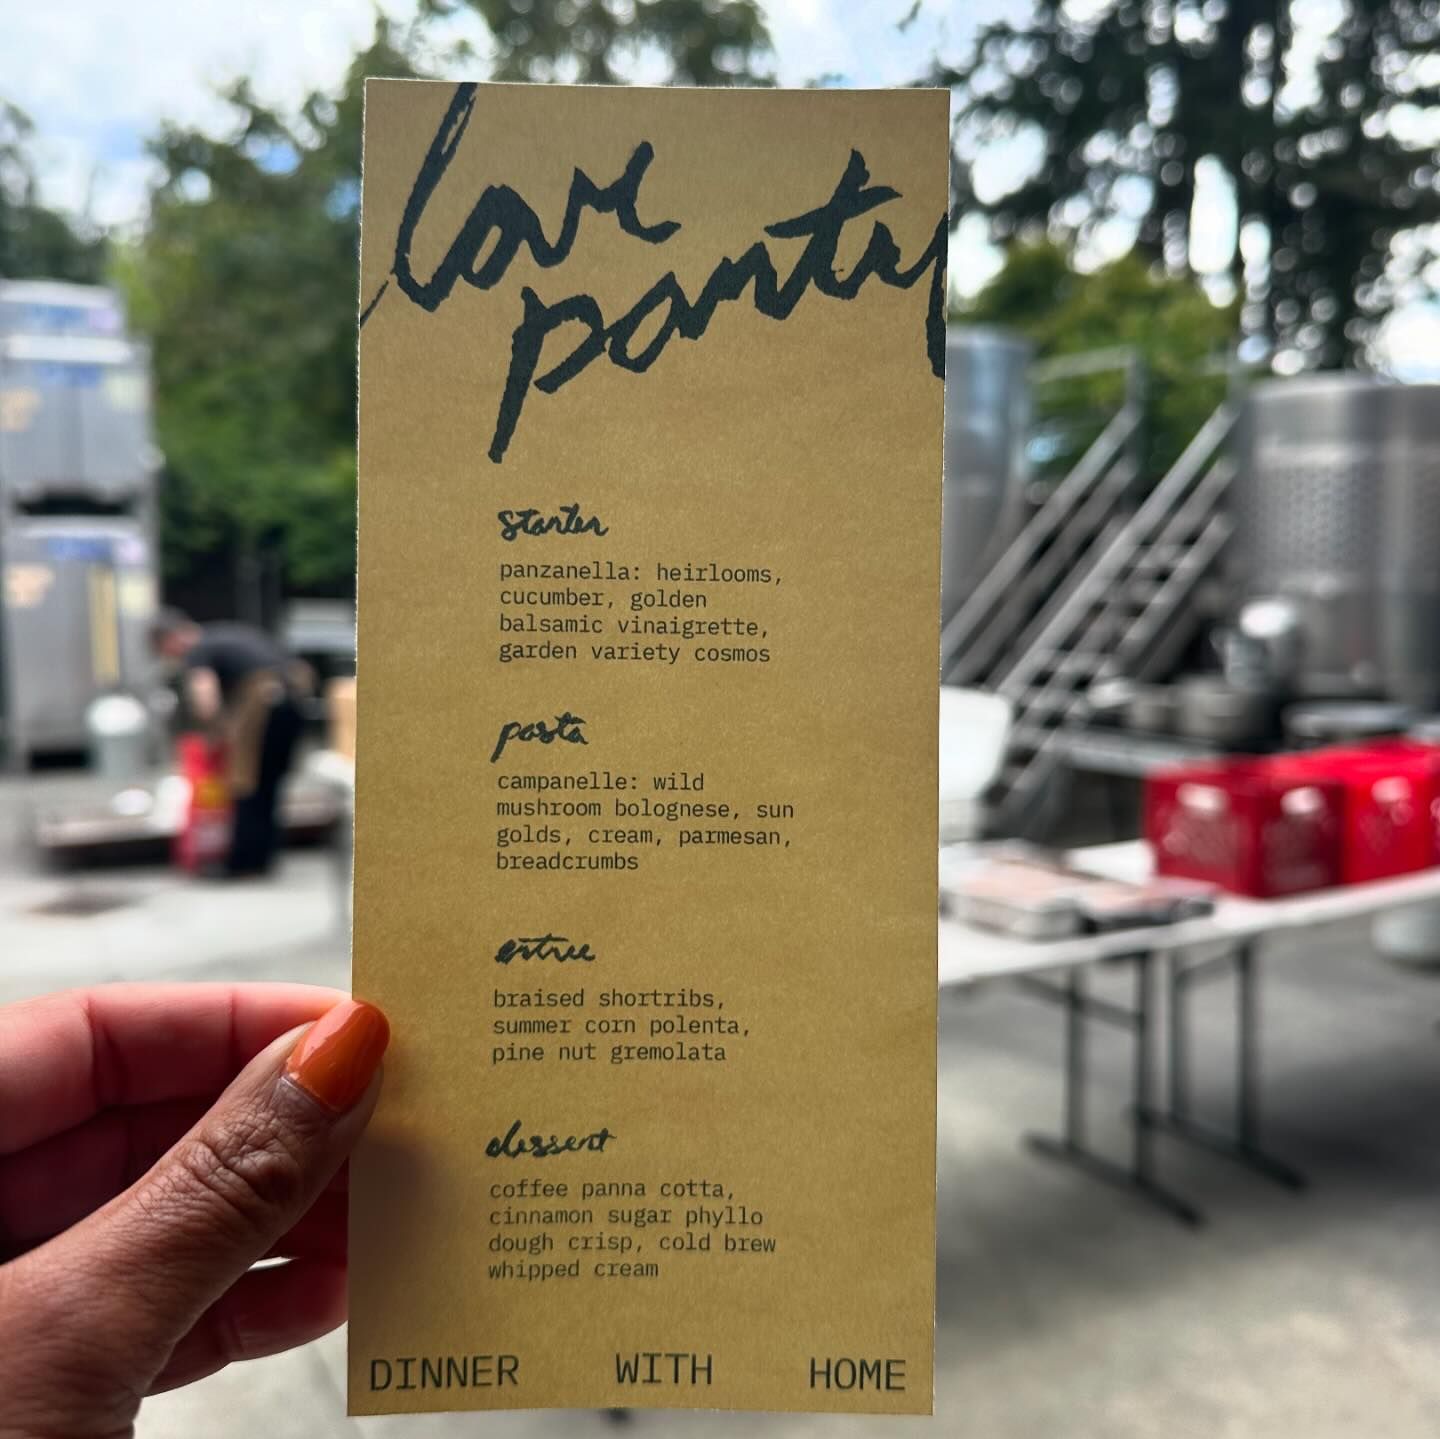 love
pantry
starter
panzanella: heirlooms,
cucumber, golden
balsamic vinaigrette,
garden variety cosmos
pasta
campanelle: wild
mushroom bolognese, sun
golds, cream, parmesan,
breadcrumbs
entree
braised shortribs,
summer corn polenta,
pine nut gremolata
dessert
coffee panna cotta,
cinnamon sugar phyllo
dough crisp, cold brew
whipped cream
DINNER WITH HOME